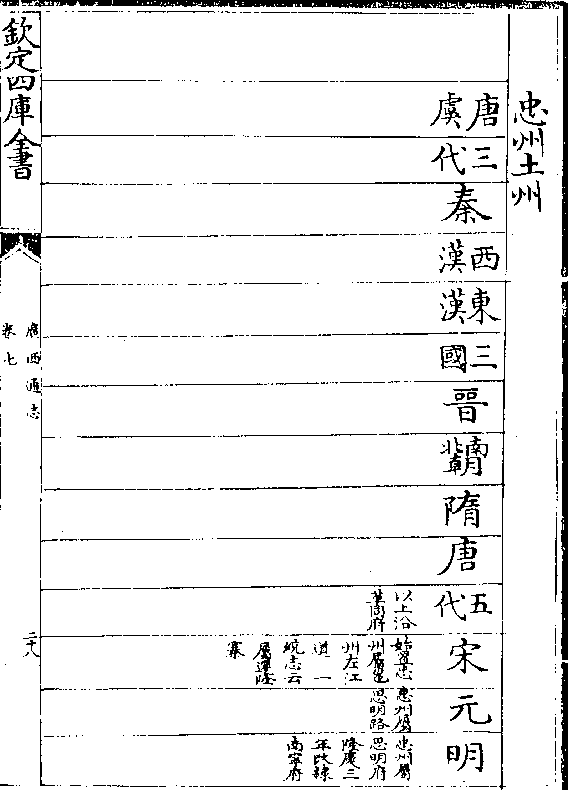 忠州土州
唐虞
三代
秦
西漢
東漢
三國
晉
南北朝
隋
唐
五代
以上沿
革同府
宋
始置忠
州屬邕
州左江
道一
統志云
屬遷隆
寨
元
忠州屬
思明路
明
忠州屬
思明府
隆慶三
年改隸
南寧府
欽定四庫全書
廣西通志
卷七
二十八